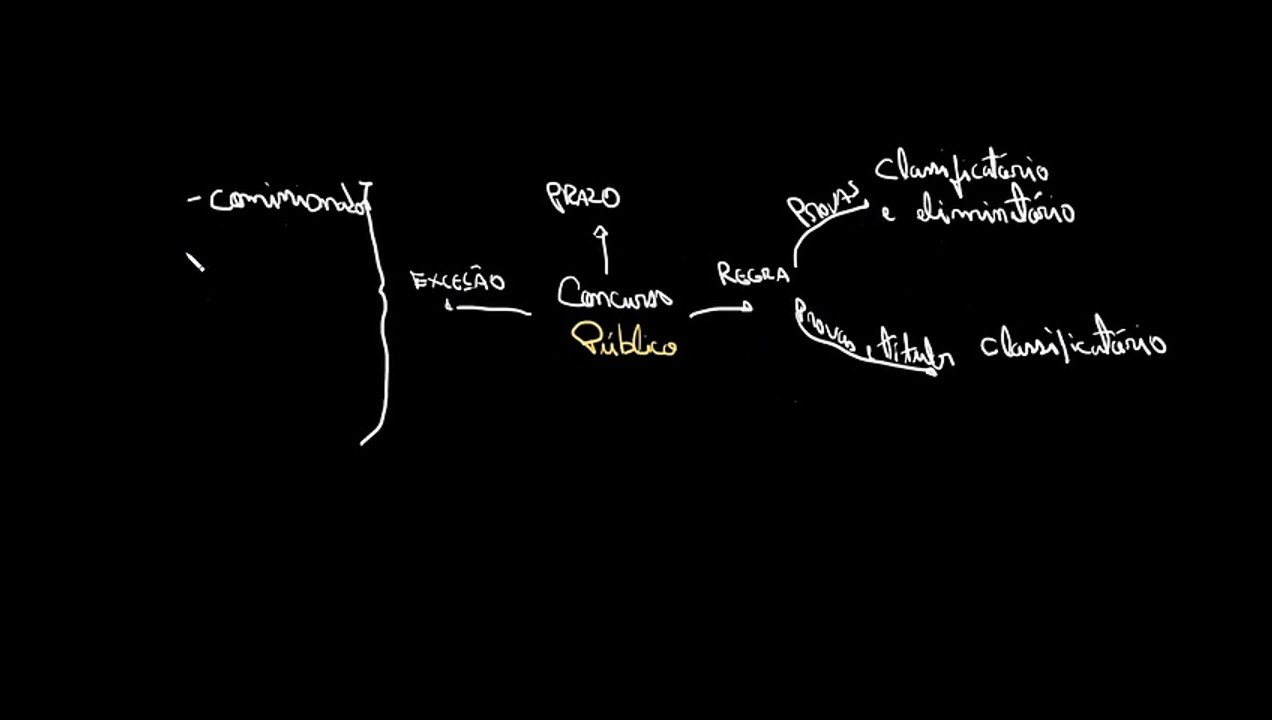 - comissionados
EXCEÇÃO
PRAZO
Concurso
Público
REGRA
PROVAS
Classificatório
e eliminatório
Provas e títulos
classificatório